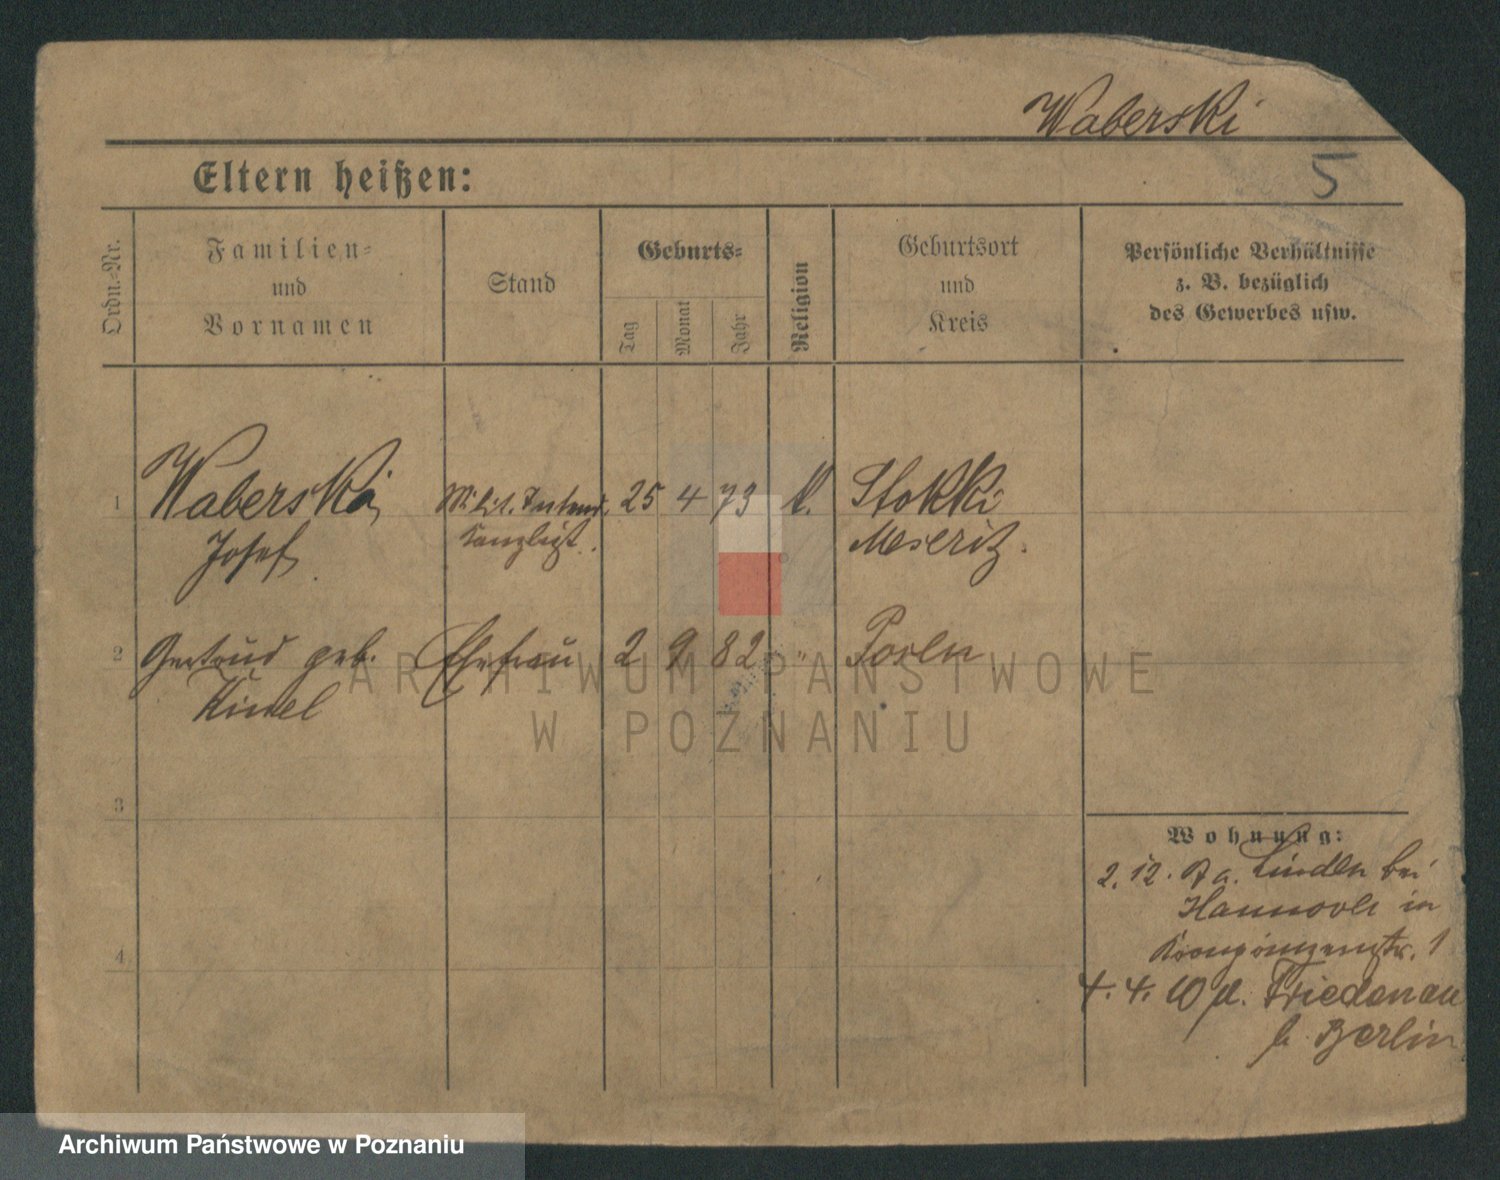 Waberski
Eltern heißen:
5
Ordn.-Nr.
Familien-
und
Vornamen
Stand
Geburts-
Tag
Monat
Jahr
Religion
Geburtsort
und
Kreis
Persönliche Verhältnisse
z. B. bezüglich
des Gewerbes usw.
1 Waberski Milit. Intend. 25 4 73 k. Stokki
Josef Kanzlist. Meseritz.
2 Gertrud geb. Ehefrau 2 9 82 " Posen
Kinel
3
4
Wohnung:
2. 12. Linden bei
Hannover in
Kronprinzenstr. 1
4. 4. 10 Friedenau
b. Berlin
ARCHIWUM PAŃSTWOWE
W POZNANIU
Archiwum Państwowe w Poznaniu